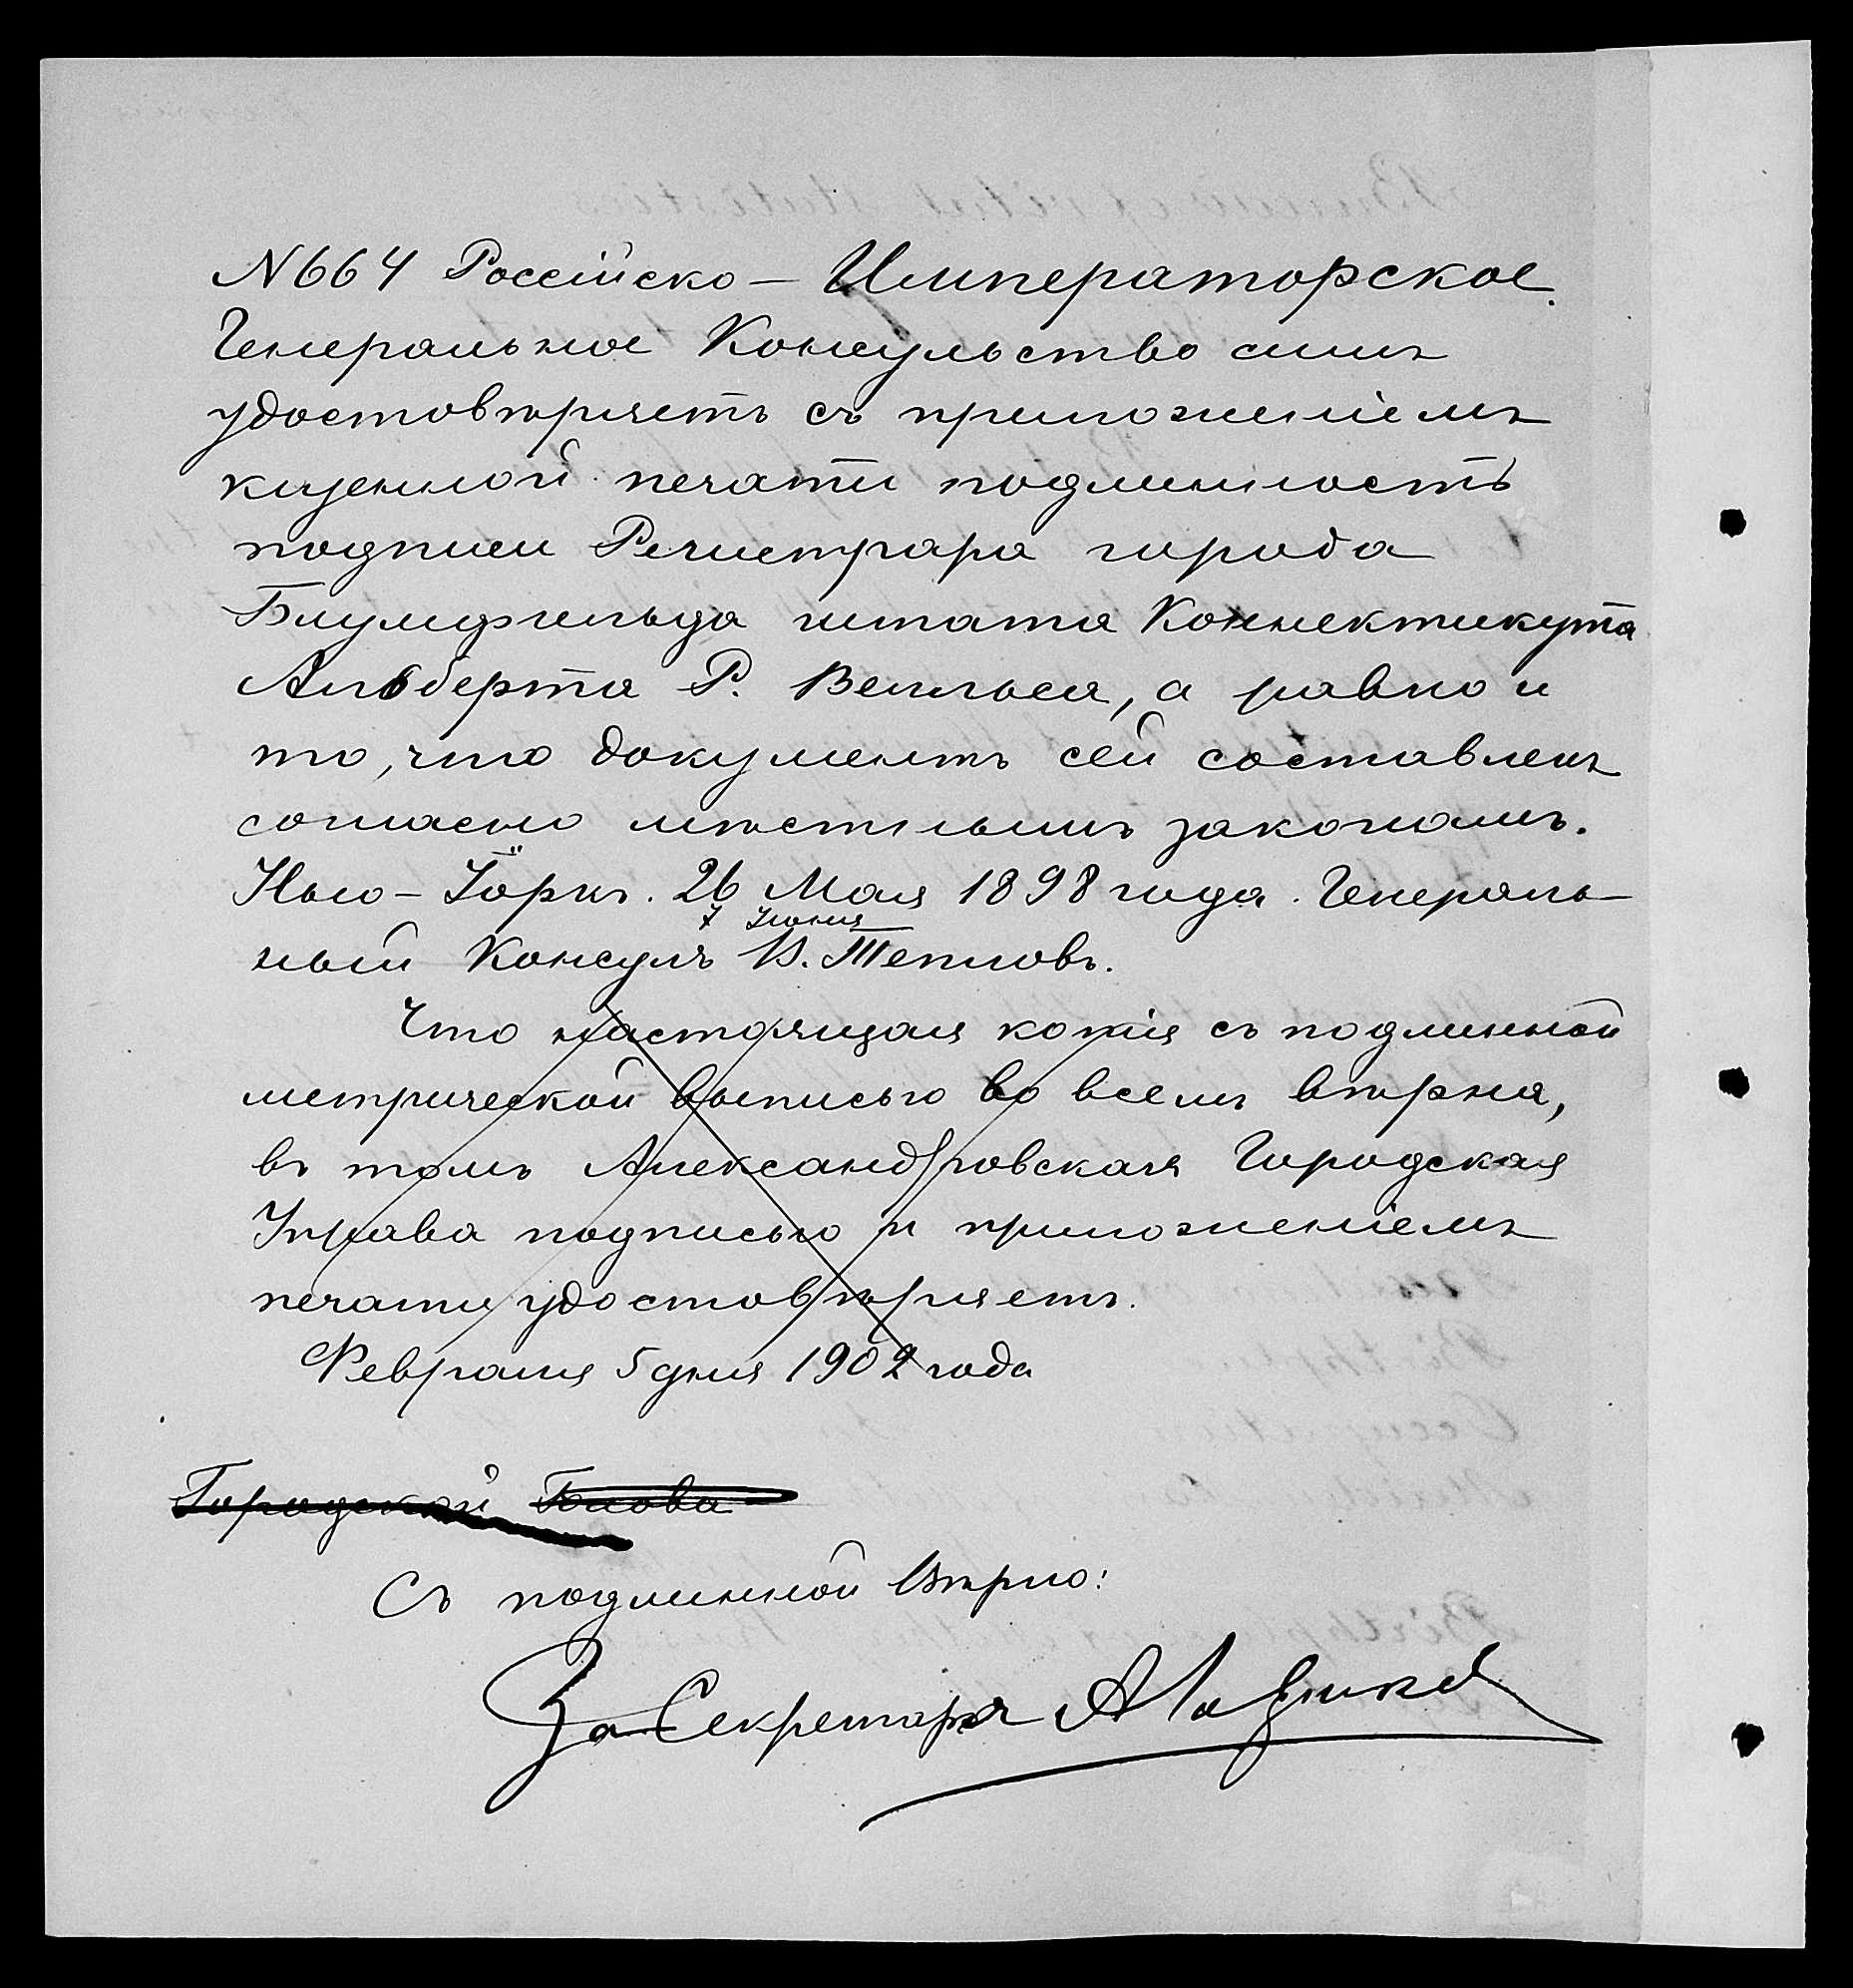 N664 Россійско-Императорское
Генеральное Консульство симъ
удостовѣряетъ съ приложеніемъ
казенной печати подлинность
подписи Регистрара города
Блумфильда штата Коннектикута
Альберта Р. Велльса, а равно и
то, что документъ сей составленъ
согласно мѣстнымъ законамъ.
Нью-Іоркъ. 26 Мая 1898 года. Генераль-
7 Іюня
ный Консулъ В. Тепловъ.
Что настоящая копія съ подлинной
метрической выписью во всемъ вѣрна,
въ томъ Александровская Городская
Управа подписью и приложеніемъ
печати удостовѣряетъ.
Февраля 5 дня 1902 года
Городской Голова
Съ подлинной вѣрно:
За Секретаря А